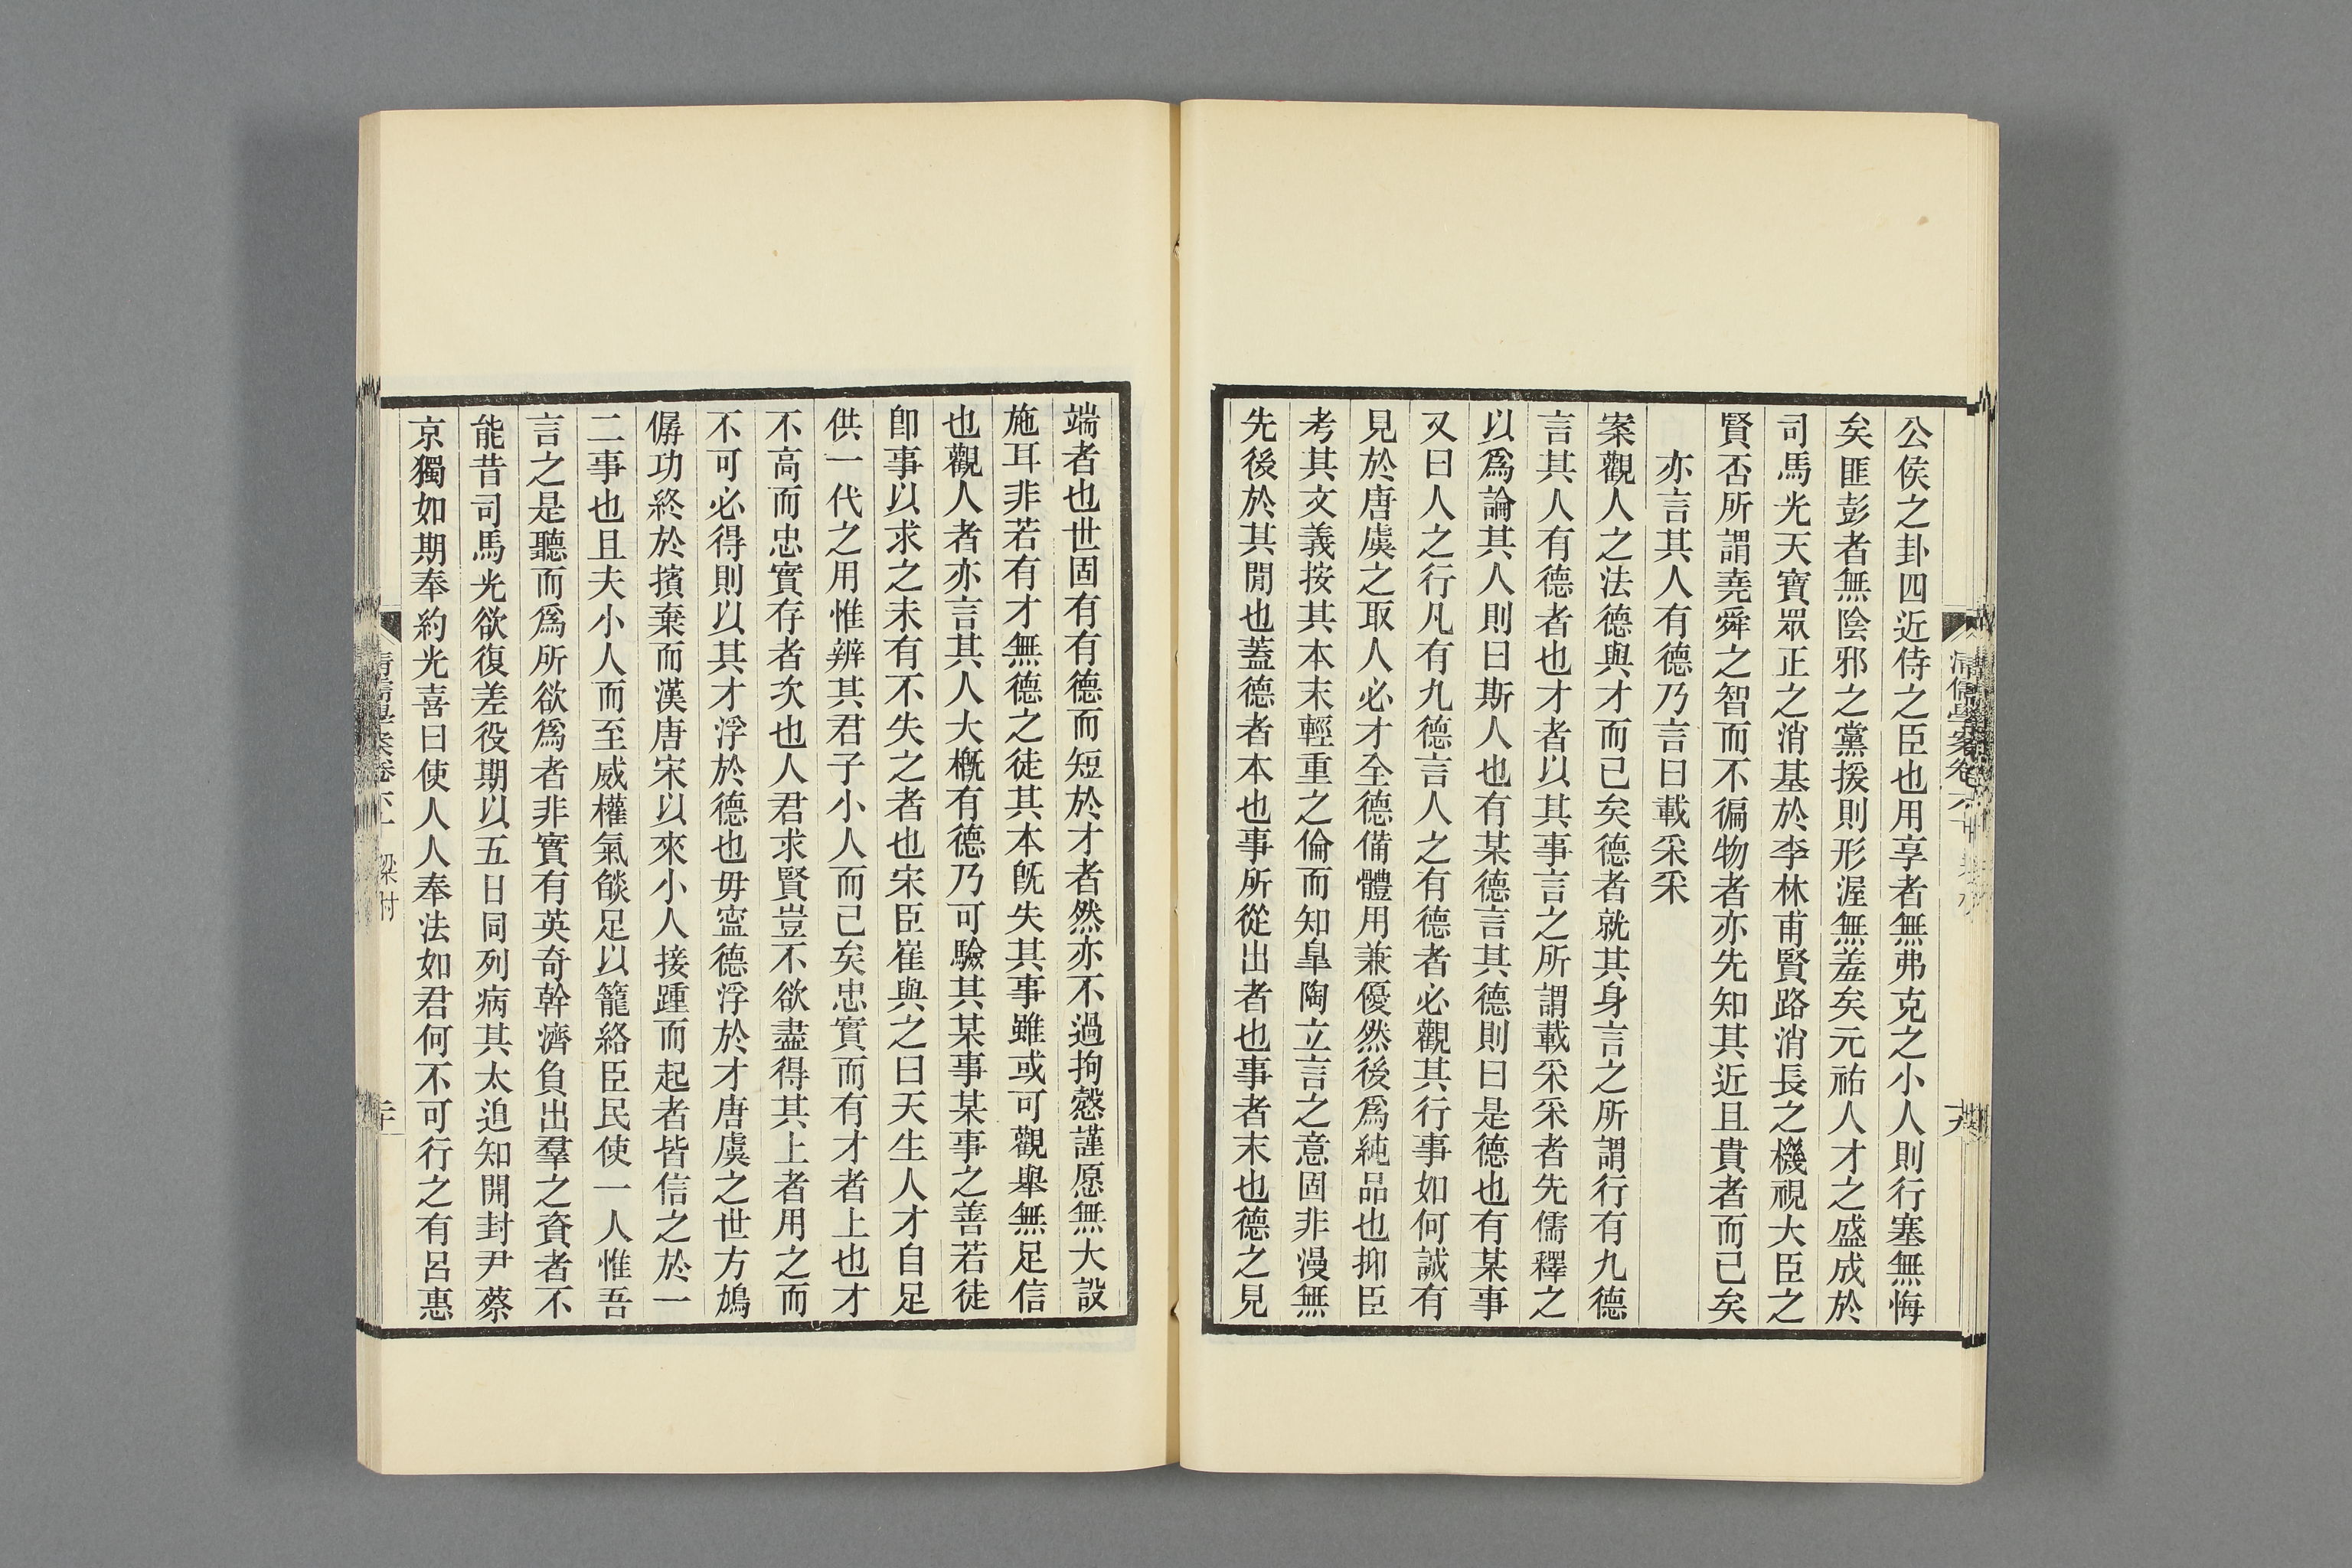 公侯之卦四近侍之臣也用享者無弗克之小人則行塞無悔
矣匪彭者無陰邪之黨援則形渥無羞矣元祐人才之盛成於
司馬光天寶眾正之消基於李林甫賢路消長之機視大臣之
賢否所謂堯舜之智而不徧物者亦先知其近且貴者而已矣
亦言其人有德乃言曰載采采
案觀人之法德與才而已矣德者就其身言之所謂行有九德
言其人有德者也才者以其事言之所謂載采采者先儒釋之
以爲論其人則曰斯人也有某德言其德則曰是德也有某事
又曰人之行凡有九德言人之有德者必觀其行事如何誠有
見於唐虞之取人必才全德備體用兼優然後爲純品也抑臣
考其文義按其本末輕重之倫而知臯陶立言之意固非漫無
先後於其閒也蓋德者本也事所從出者也事者末也德之見
端者也世固有有德而短於才者然亦不過拘愨謹愿無大設
施耳非若有才無德之徒其本旣失其事雖或可觀舉無足信
也觀人者亦言其人大槪有德乃可驗其某事某事之善若徒
卽事以求之未有不失之者也宋臣崔與之曰天生人才自足
供一代之用惟辨其君子小人而已矣忠實而有才者上也才
不高而忠實存者次也人君求賢豈不欲盡得其上者用之而
不可必得則以其才浮於德也毋寍德浮於才唐虞之世方鳩
僝功終於擯棄而漢唐宋以來小人接踵而起者皆信之於一
二事也且夫小人而至威權氣燄足以籠絡臣民使一人惟吾
言之是聽而爲所欲爲者非實有英奇幹濟負出羣之資者不
能昔司馬光欲復差役期以五日同列病其太迫知開封尹蔡
京獨如期奉約光喜曰使人人奉法如君何不可行之有呂惠